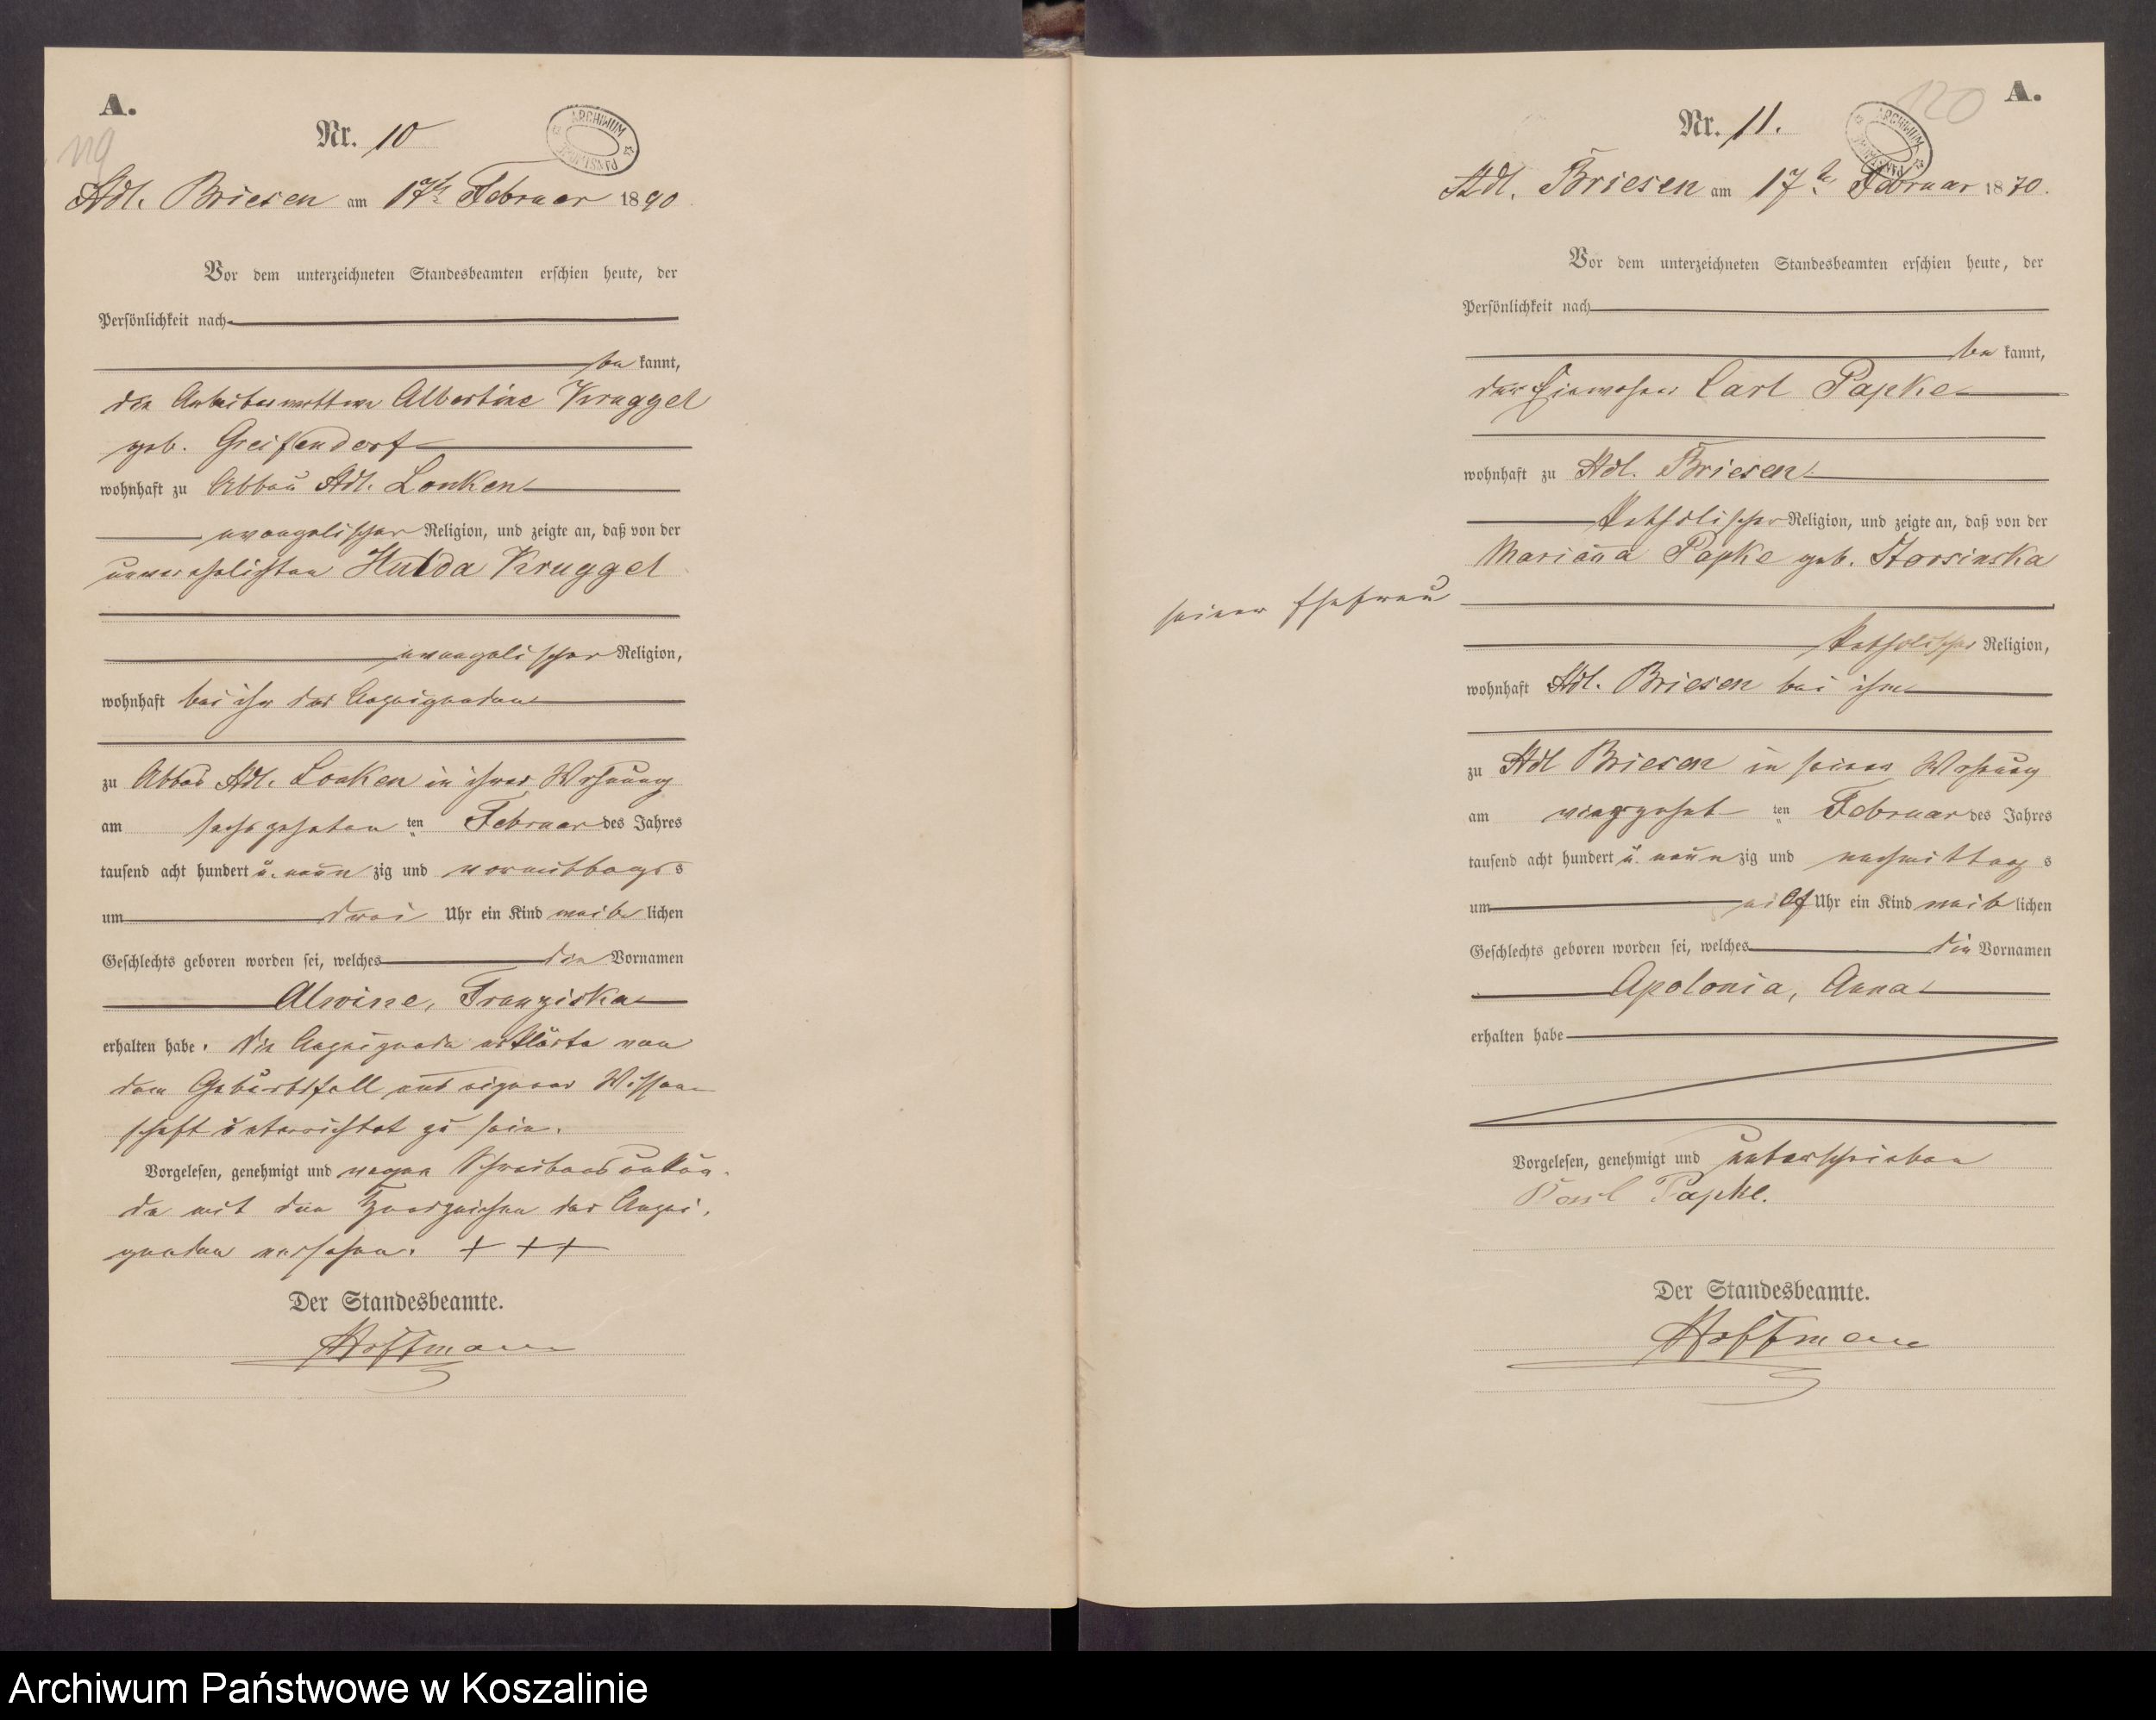 A.
119
Nr. 10
ARCHIWUM PAŃSTWOWE
Adl. Briesen am 17ten Februar 1890
Vor dem unterzeichneten Standesbeamten erschien heute, der
Persönlichkeit nach
bekannt,
die Arbeiterwittwe Albertine Kruggel
geb. Greifendorf
wohnhaft zu Abbau Adl. Lonken
evangelischer Religion, und zeigte an, daß von der
unverehelichten Hulda Kruggel
evangelischer Religion,
wohnhaft bei ihr der Anzeigenden
zu Abbau Adl. Lonken in ihrer Wohnung
am sechszehnten ten Februar des Jahres
tausend acht hundert u. neunzig und vormittags s
um drei Uhr ein Kind weiblichen
Geschlechts geboren worden sei, welches die Vornamen
Alwine, Franziska
erhalten habe. Die Anzeigende erklärte von
dem Geburtsfall aus eigener Wissen-
schaft unterrichtet zu sein.
Vorgelesen, genehmigt und wegen Schreibensunkun-
de mit den Handzeichen der Anzei-
genden versehen. + + +
Der Standesbeamte.
Hoffmann
A.
120
Nr. 11.
ARCHIWUM PAŃSTWOWE
Adl. Briesen am 17ten Februar 1890.
Vor dem unterzeichneten Standesbeamten erschien heute, der
Persönlichkeit nach
bekannt,
der Einwohner Carl Papke
wohnhaft zu Adl. Briesen
katholischer Religion, und zeigte an, daß von der
Marianna Papke geb.
seiner Ehefrau
katholischer Religion,
wohnhaft Adl. Briesen bei ihm
zu Adl Briesen in seiner Wohnung
am vierzehnten Februar des Jahres
tausend acht hundert u. neunzig und nachmittags
um elf Uhr ein Kind weiblichen
Geschlechts geboren worden sei, welches die Vornamen
Apolonia, Anna
erhalten habe
Vorgelesen, genehmigt und unterschrieben
Karl Papke.
Der Standesbeamte.
Hoffmann
Archiwum Państwowe w Koszalinie